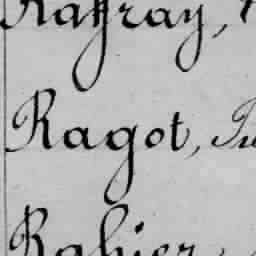 Raffray,
Ragot,
Rahier,